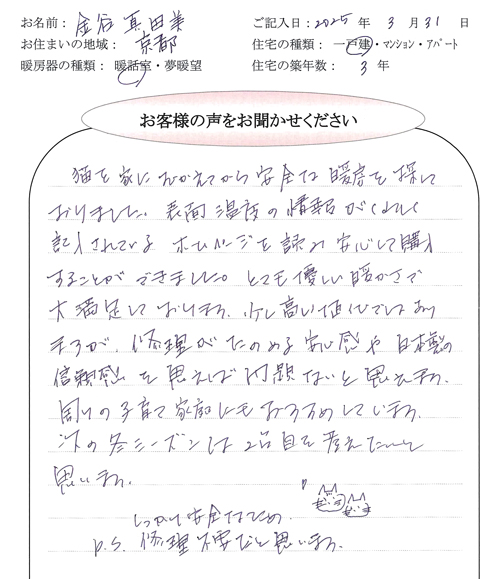 お名前： 金谷 真由美
ご記入日：2025 年 3 月 31 日
お住まいの地域： 京都
住宅の種類： 一戸建・マンション・アパート
暖房器の種類： 暖話室・夢暖望
住宅の築年数： 3 年
お客様の声をお聞かせください
猫を家にむかえてから安全な暖房を探して
おりました。表面温度の情報がくわしく
記入されている ホームページを読み安心して購入
することができました。とても優しい暖かさで
大満足しております。少し高い値段ではあり
ますが、修理がたのめる安心感や日本製の
信頼感を思えば問題ないと思えます。
周りの子育て家庭にもおすすめしています。
次の冬シーズンは2台目を考えたいと
思います。
しっかり安全なため
p.s. 修理不要だと思います。